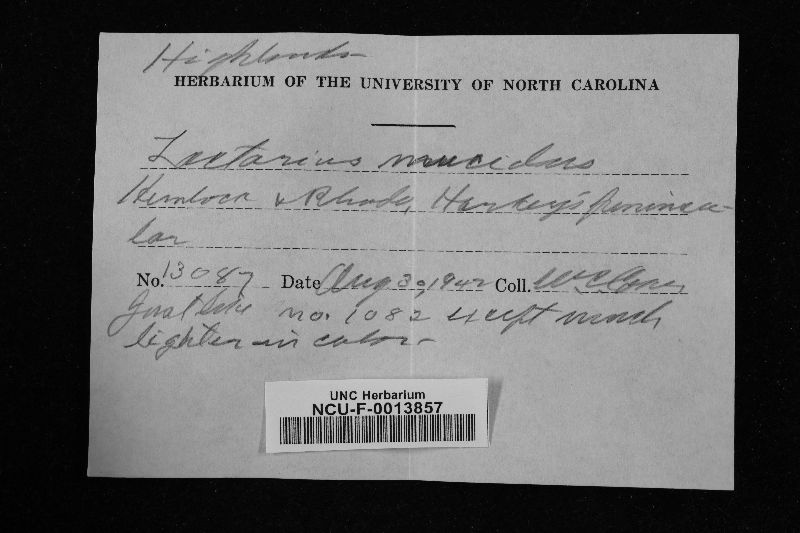 Highlands
HERBARIUM OF THE UNIVERSITY OF NORTH CAROLINA
Lactarius mucidus
Hemlock & Rhodo, Harkey's peninsu-
lar
No. 13087 Date Aug 30, 1942 Coll. W C Coker
Just like no. 1082 except much
lighter in color-
UNC Herbarium
NCU-F-0013857